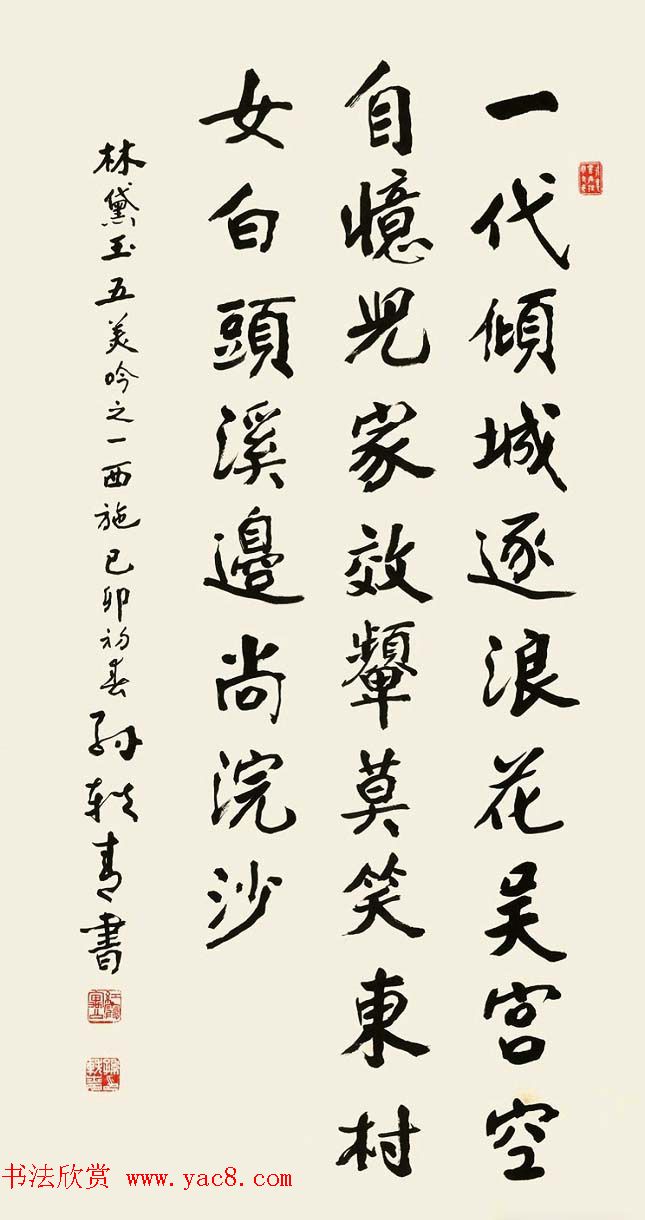 一代傾城逐浪花吴宮空
自憶兒家效顰莫笑東村
女白頭溪邊尚浣沙
林黛玉五美吟之一西施己卯初春孫軼青書
书法欣赏 www.yac8.com